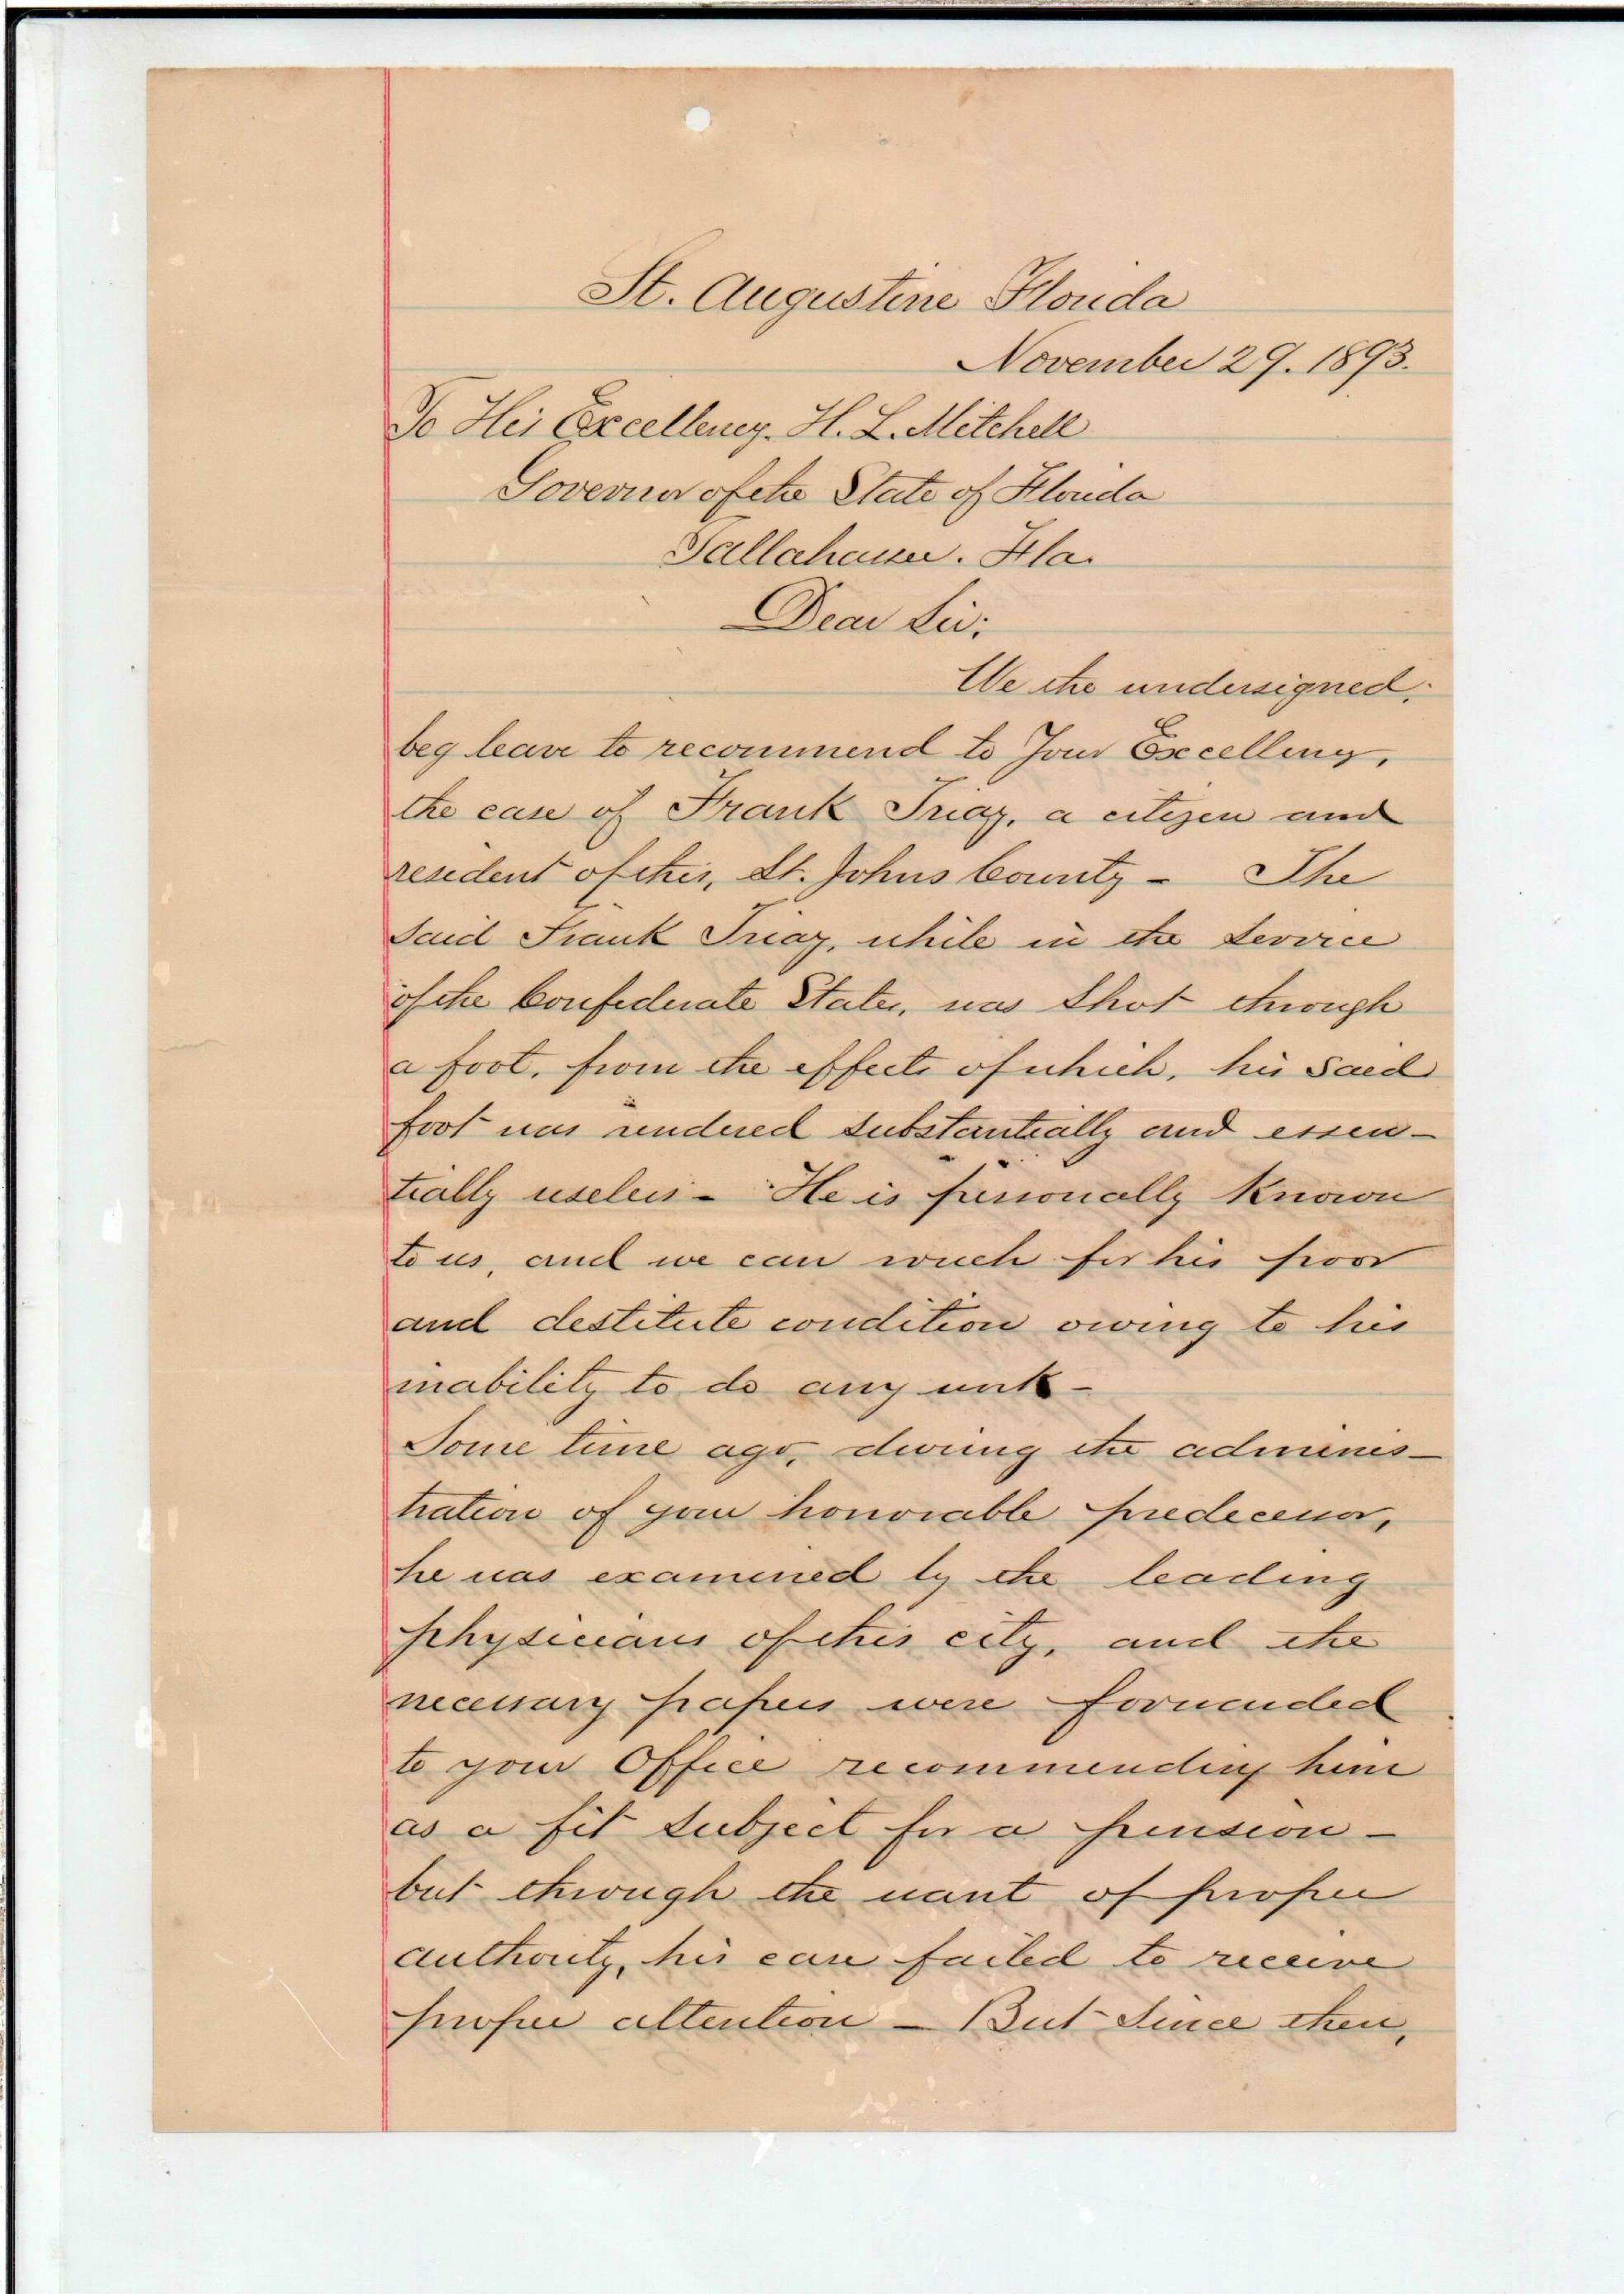 St. Augustine Florida
November 29. 1893.
To His Excellency. H. L. Mitchell
Governor of the State of Florida
Tallahassee. Fla.
Dear Sir:
We the undersigned,
beg leave to recommend to Your Excellency,
the case of Frank Triay, a citizen and
resident of this, St. Johns County - The
said Frank Triay, while in the service
of the Confederate States, was shot through
a foot, from the effects of which, his said
foot was rendered substantially and essen-
tially useless - He is personally known
to us, and we can vouch for his poor
and destitute condition owing to his
inability to do any work -
Some time ago, during the adminis-
tration of your honorable predecessor,
he was examined by the leading
physicians of this city, and the
necessary papers were forwarded
to your Office recommending him
as a fit subject for a pension -
but through the want of proper
authority, his case failed to receive
proper attention - But since then,